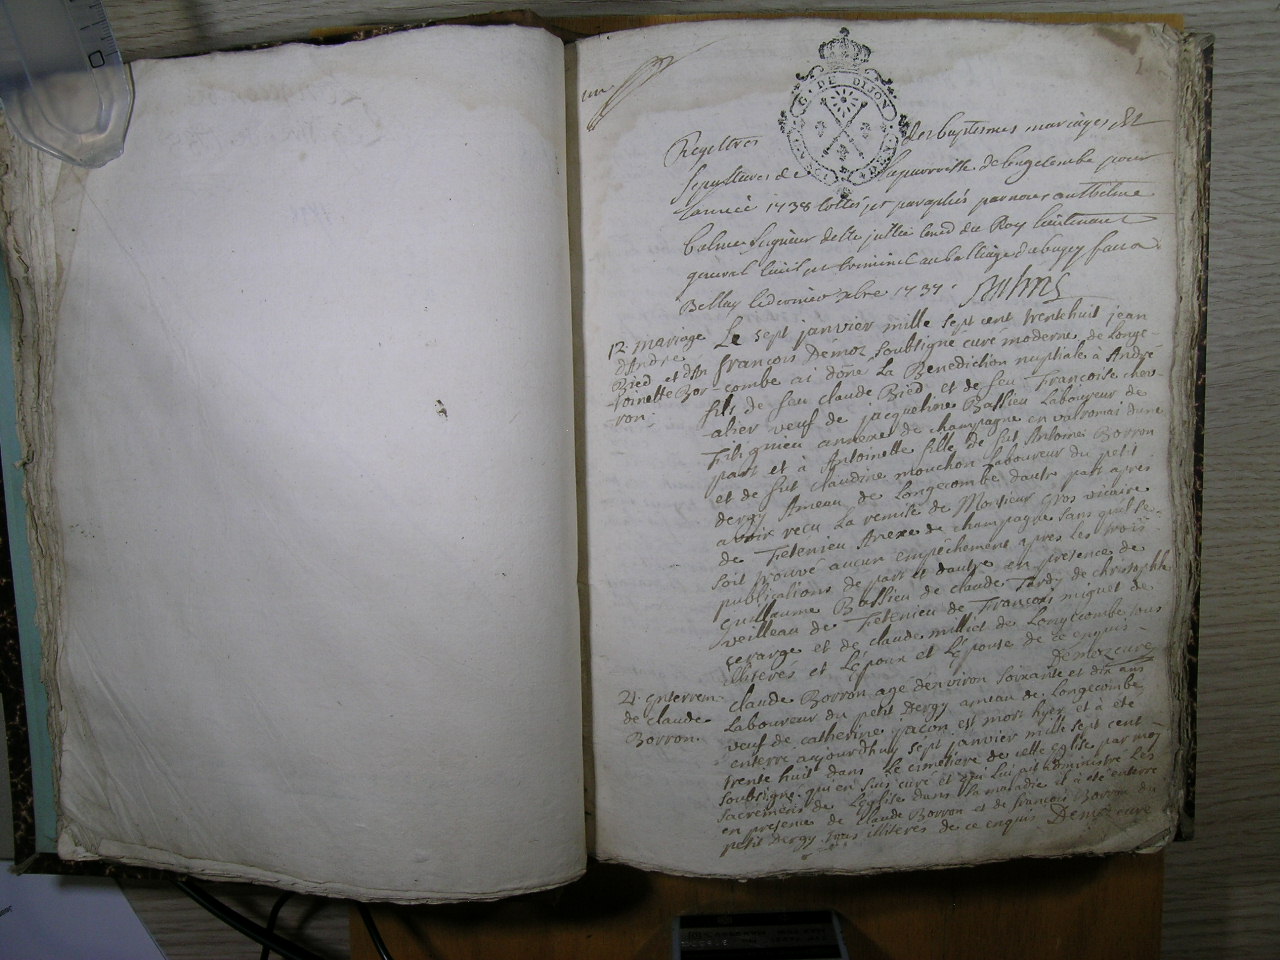 un
G. DE DIJON
Registres des baptesmes mariages, et
sepultures de la parroisse de longecombe pour
lannée 1738 cottés et paraphés par nous anthelme
balme Seigneur de Ste jullie conser du Roy lieutenant
general civil et criminel au balliage dubugey fait a
Belley le dernier xbre 1737. Balme
12 mariage
d'André
Bied et d'An
-toinette Bor-
ron.
Le sept janvier mille sept cent trentehuit jean
françois Démoz soubsigné curé moderne de Longe-
-combe ai doné La Benediction nuptiale à André
fils de feu claude Bied et de feu Françoise chev-
-alier veuf de jacqueline Ballieu Laboureur de
annexe de champagne en valromai dune
part et à Antoinette fille de fut Antoine Borron
et de fut claudine mouchon Laboureur du petit
dergy Ameau de Longecombe dautre part apres
avoir reçu La remise de Monsieur Gros vicaire
de Fetenieu Anexe de champagne sans quil se
soit trouvé aucun empéchement apres Les trois
publications de part et dautre en presence de
guillaume Ballieu de claude Tardy de christophle
veilleau de Fetenieu de François miguet de
cerarge et de claude milliet de Longecombe tous
illiterés et L'époux et L'épouse de ce enquis -
Démoz curé
21. enterrem
de claude
Borron.
claude Borron agé d'environ soixante et dix ans
Laboureur du petit Dergy ameau de Longecombe
veuf de catherine jacon est mort hyer et à été
enterré aujourdhuy sept janvier mille sept cent
trente huit dans Le cimetiere de cette église par moy
soubsigné qui en suis curé et qui Lui ait administré Les
sacremens de L'église dans sa maladie il à été enterré
en presence de claude Borron et de françois Borron du
petit Dergy tous illiterés de ce enquis Démoz curé